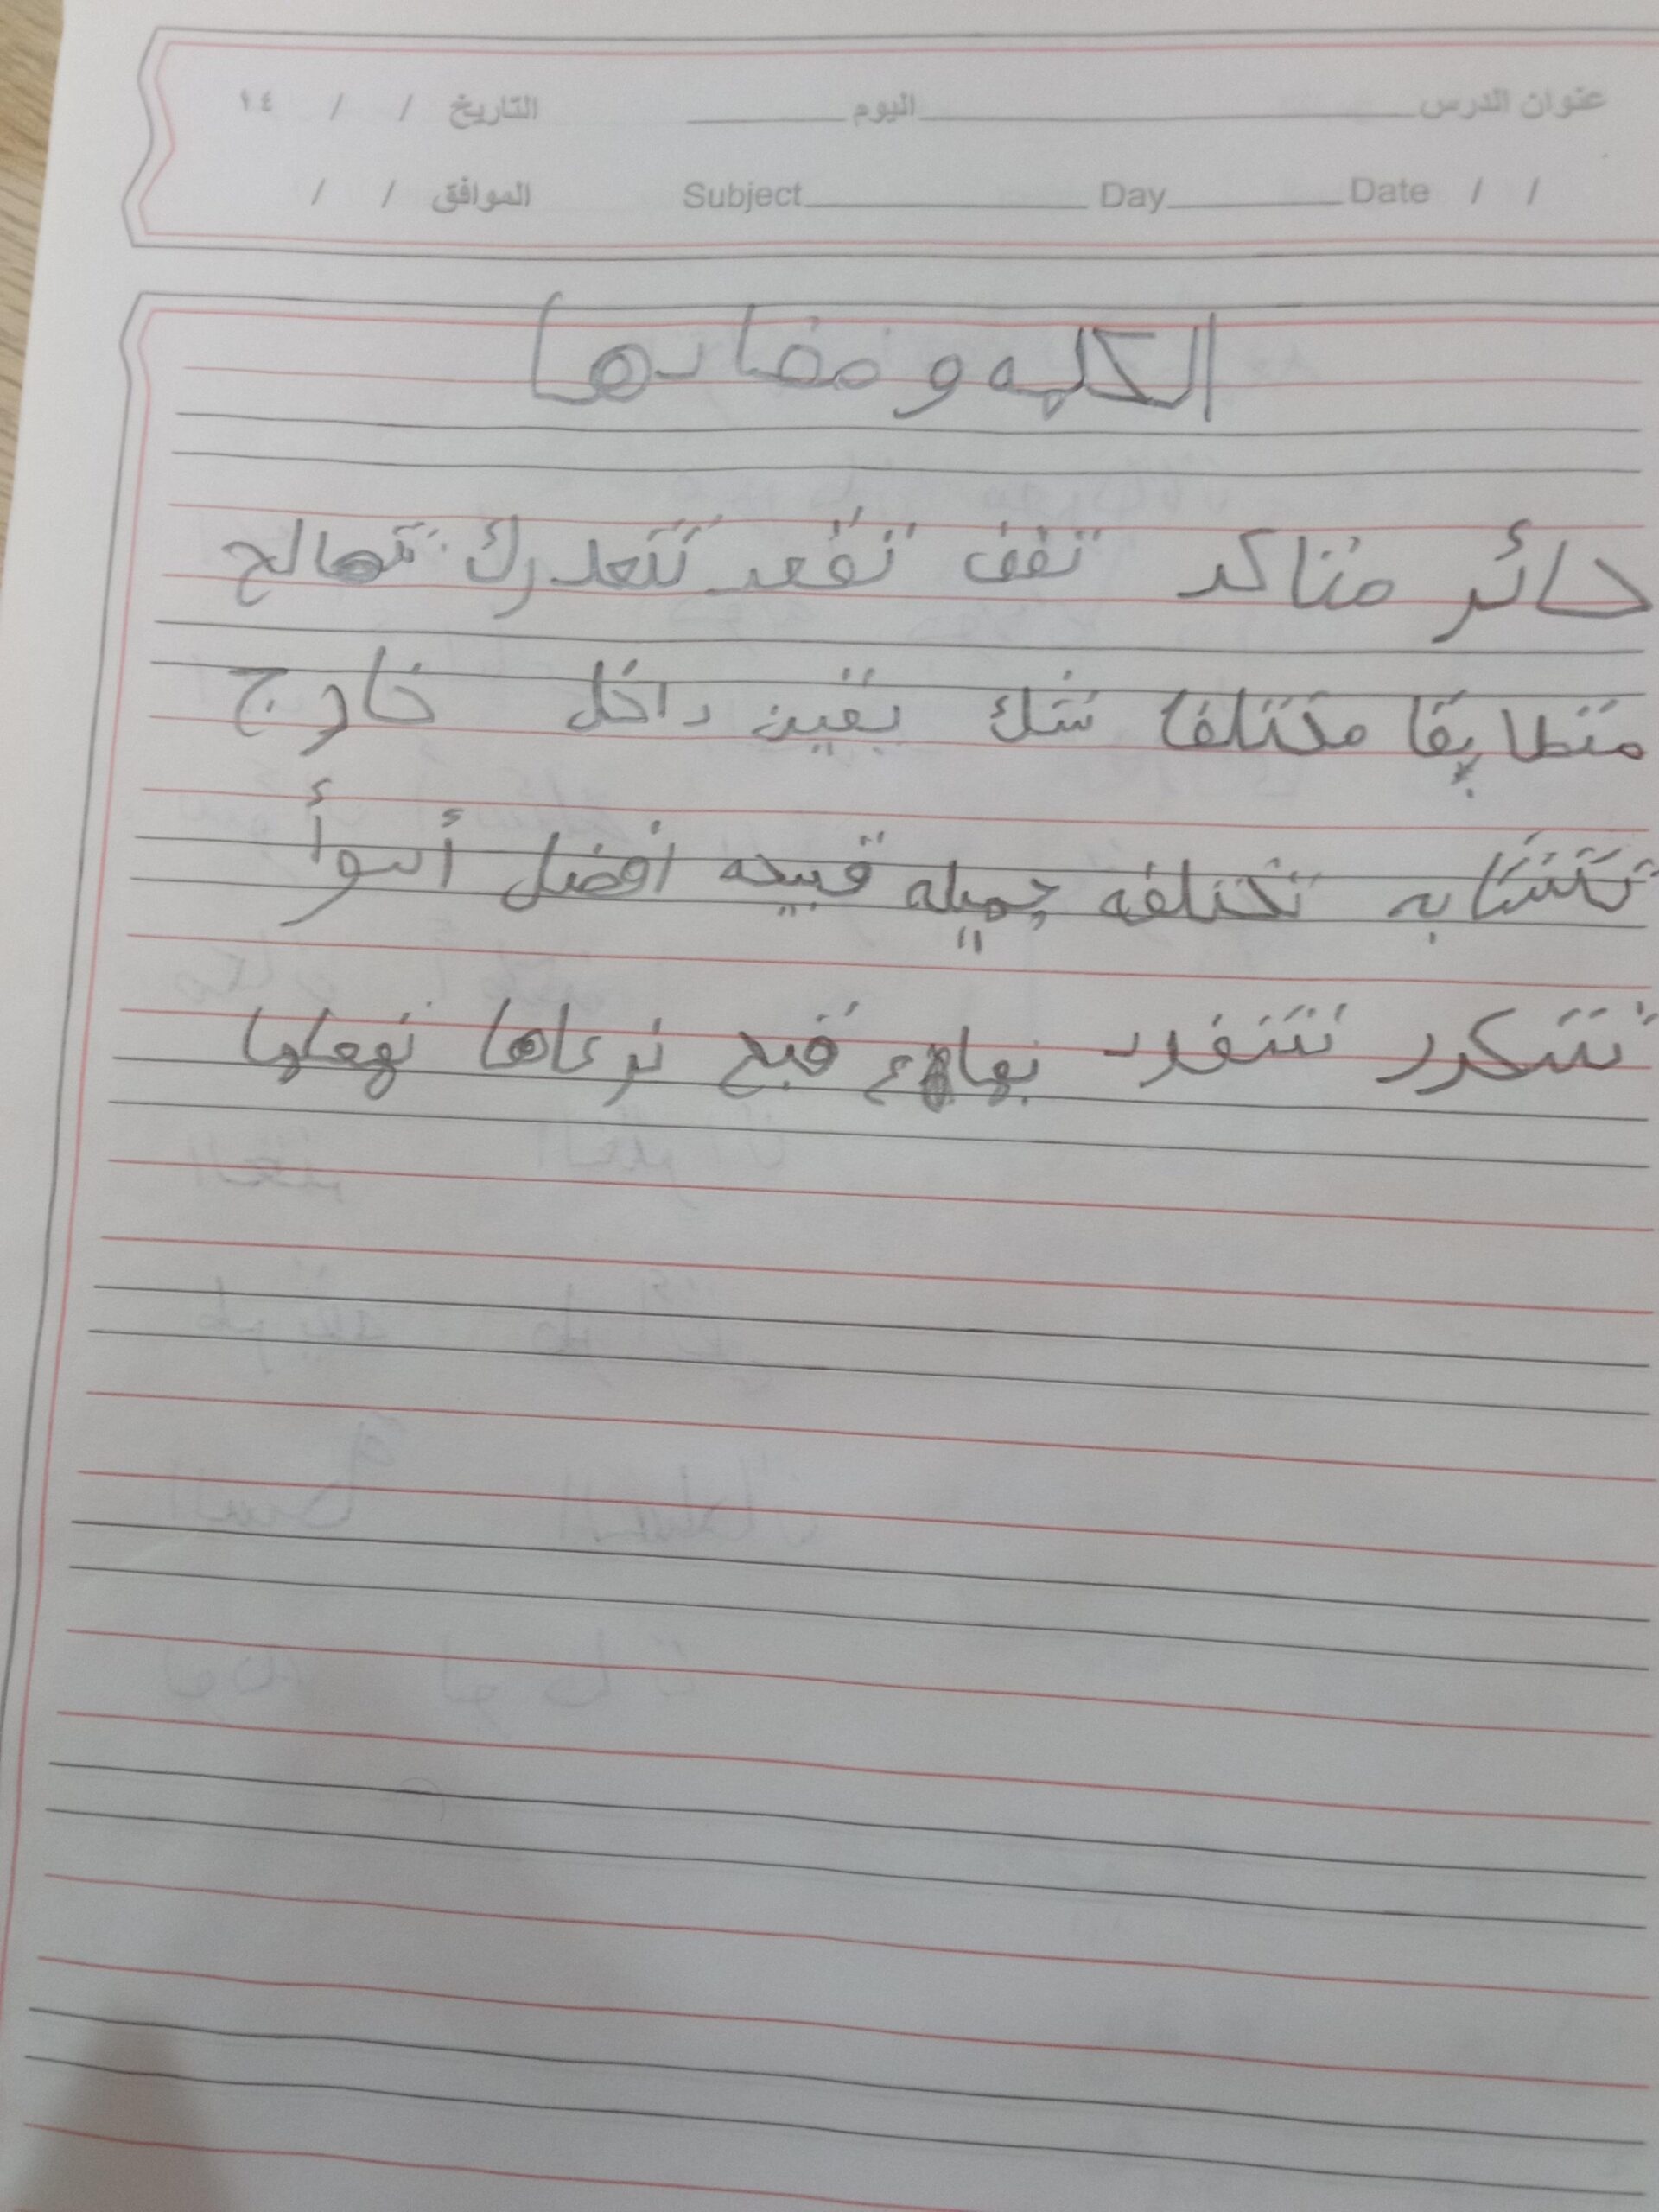 عنوان الدرس اليوم التاريخ / / ١٤
Date / / Day Subject الموافق / /
الكلمه و مضادها
حائر متاكد تقف تقعد تتعارك تتصالح
متطابقا مختلفا شك يقين داخل خارج
تتشابه تختلفه جميله قبيحه افضل أسوأ
تتكرر تتفرد بهاء قبح نرعاها نهملها